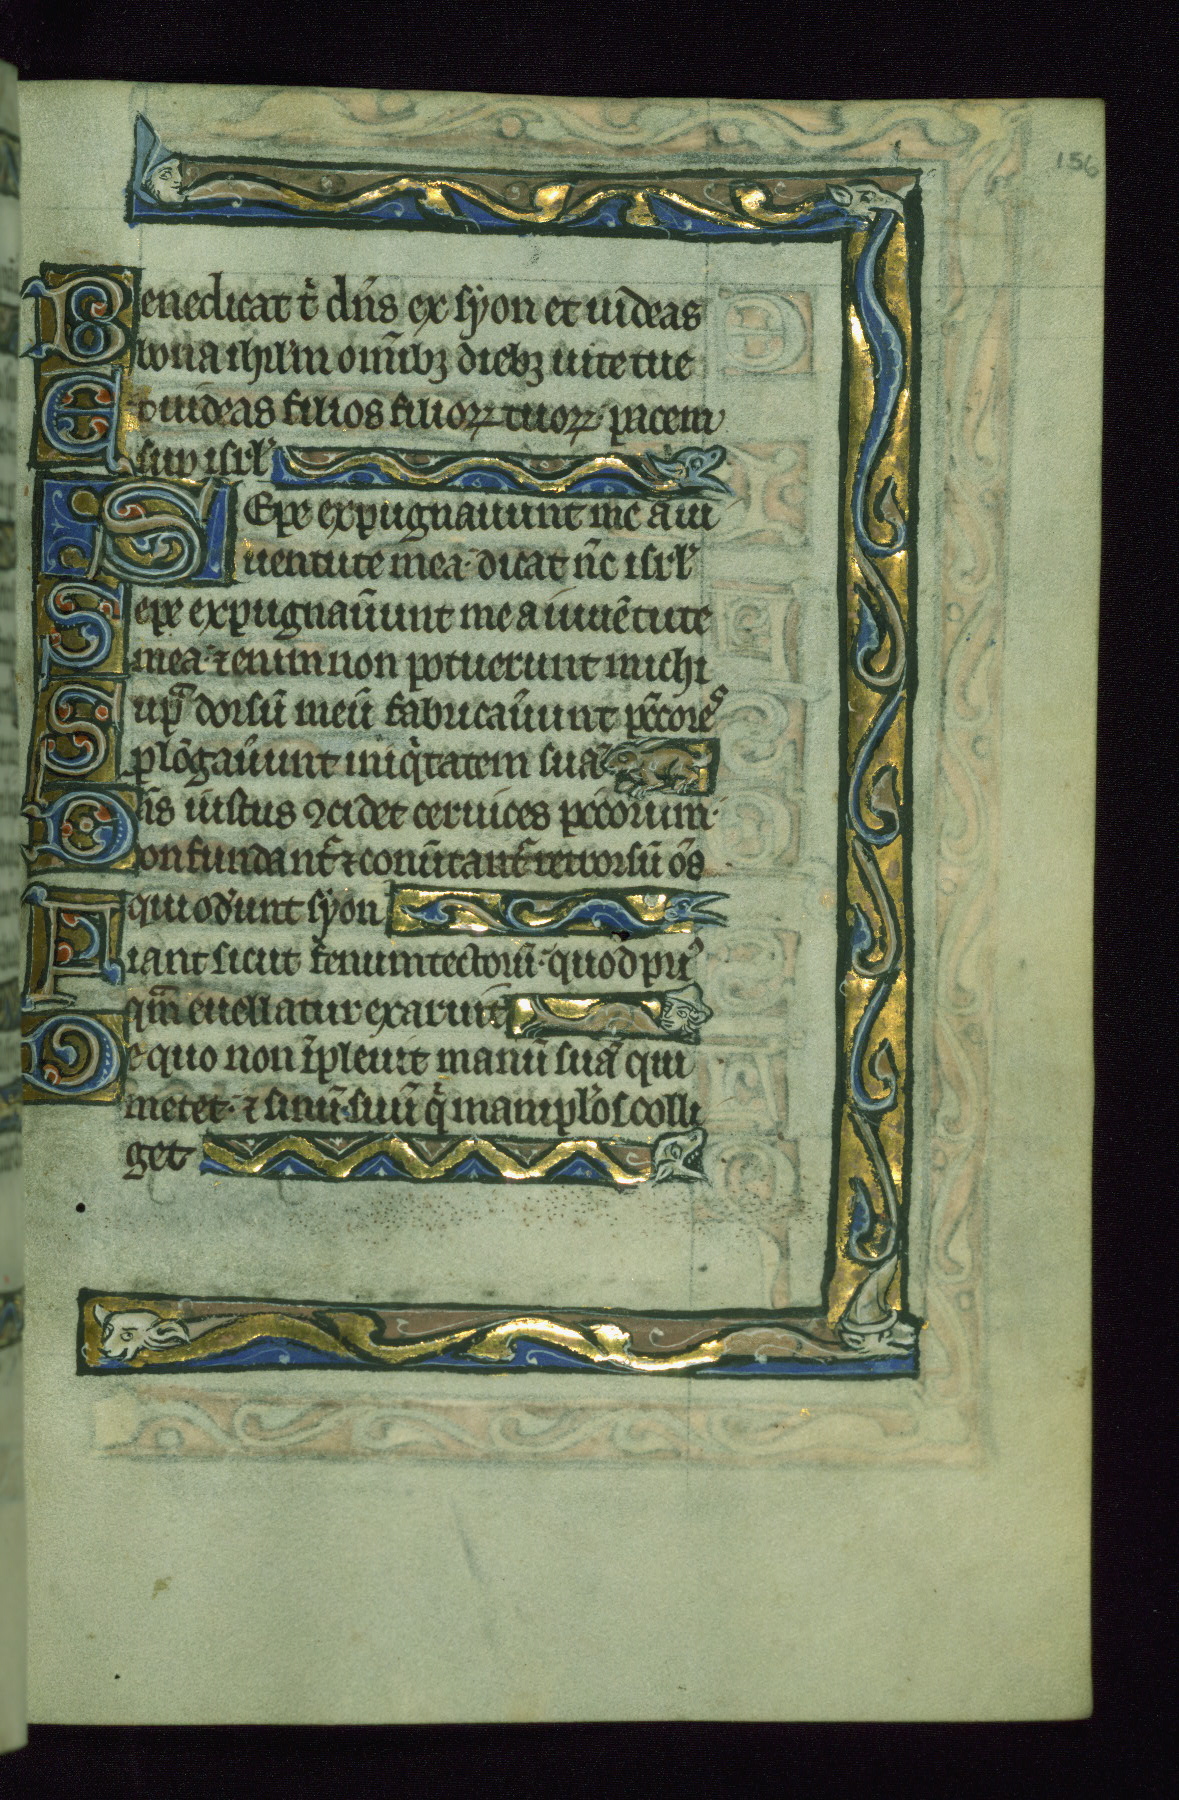 156
Benedicat t̉ dn̄s ex syon et uideas
bona ihrl'm om̄ibꝫ diebꝫ uite tue
Et uideas filios filioꝝ tuoꝝ· pacem
sup isrl'
SEpe expugnauerunt me a iu
uentute mea· dicat nc̄ isrl'
Sepe expugnau̓unt me a iuuētute
mea· ⁊ enim non potuerunt michi
Sup̄ dorsū meū fabricau̓unt pc̄cores
plōgau̓unt iniq̇tatem suā
Dn̄s iustus ꝯcidet ceruices pccorum·
confundant᷑ ⁊ conu̓tant᷑ retrorsū om̄s
qui od̓unt syon
Fiant sicut fenum tectorū· quod pri
qm̄ euellatur exaruit
De quo non īpleuit manū suā qui
metet· ⁊ sinū suū q̇ manipl'os colli
get